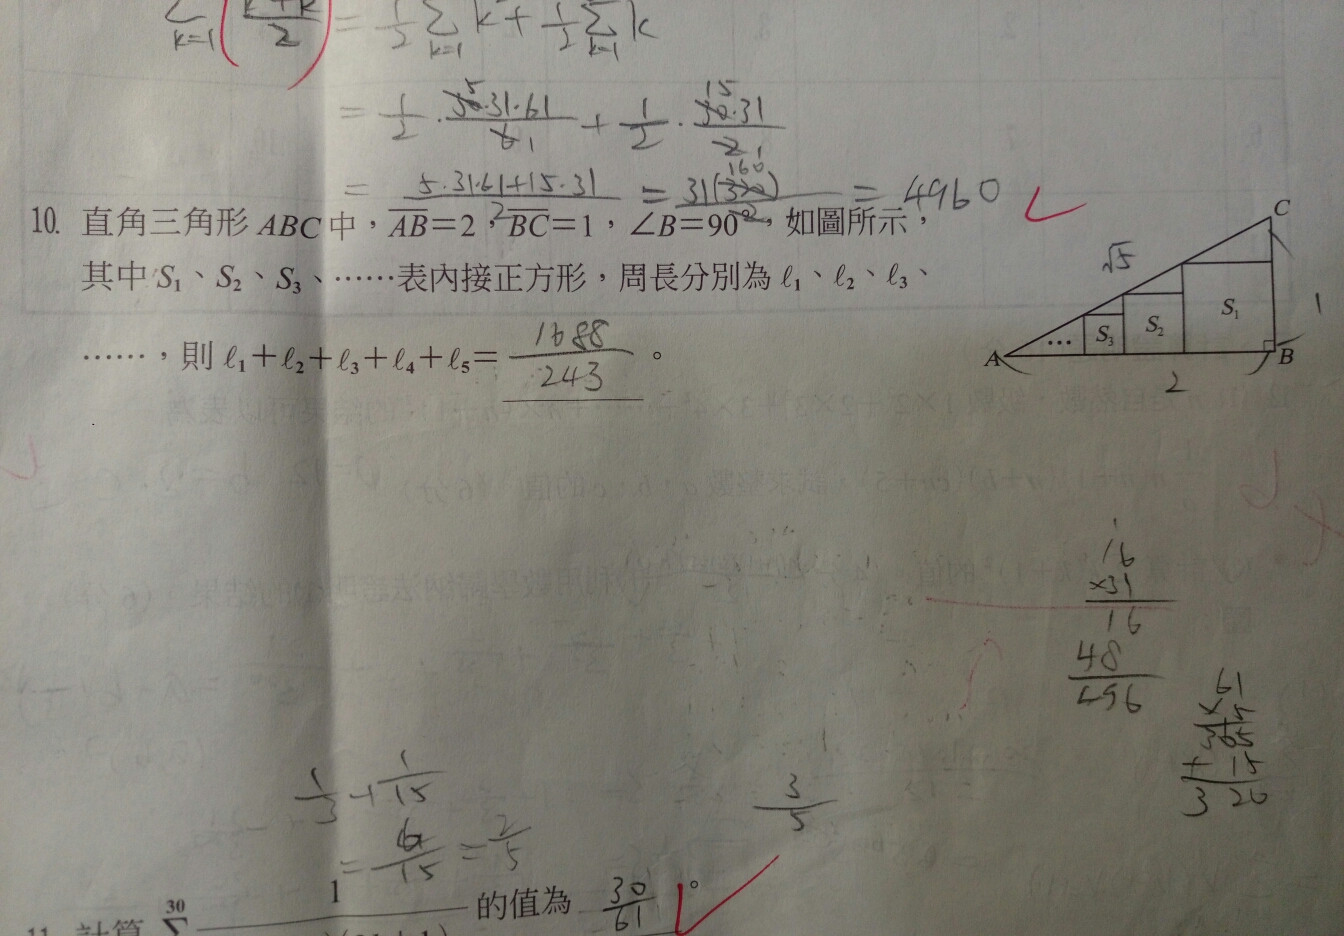 = 1/2 Σ k=1 k + 1/2 Σ k=1 k
= 1/2 · 30·31·61/6 1 + 1/2 · 15 30·31/2 1
= 5·31·61+15·31/2 = 31(320)/2 160 = 4960
10. 直角三角形 ABC 中，AB=2，BC=1，∠B=90°，如圖所示，
其中 S₁、S₂、S₃、……表內接正方形，周長分別為 ℓ₁、ℓ₂、ℓ₃、
……，則 ℓ₁+ℓ₂+ℓ₃+ℓ₄+ℓ₅= 1688/243 。
C
√5
1
S₁
S₂
S₃
…
A
B
2
16
×31
16
48
496
61
×5
305
+ 15
320
1/3+1/15
= 6/15 = 2/5
3/5
11. 計算 30 Σ 1 的值為 30/61 。